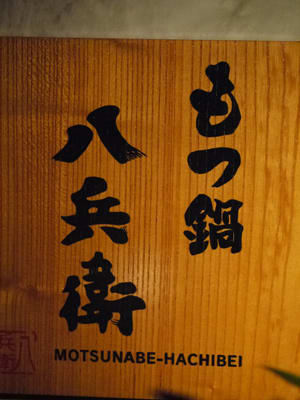 もつ鍋
八兵衛
MOTSUNABE-HACHIBEI
八兵衛